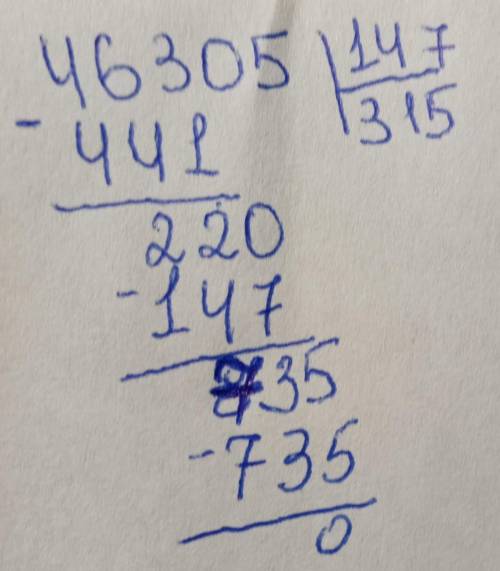 46305 147
- 441 315
220
- 147
735
- 735
0